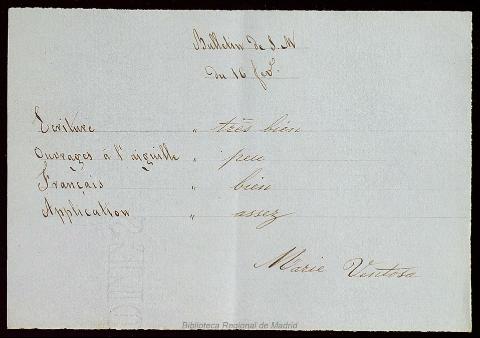 Bulletin de S. N
du 16 fev.
Ecriture " très bien
Ouvrages á l'aiguille " peu
Français " bien
Application " assez
Marie Ventosa
Biblioteca Regional de Madrid